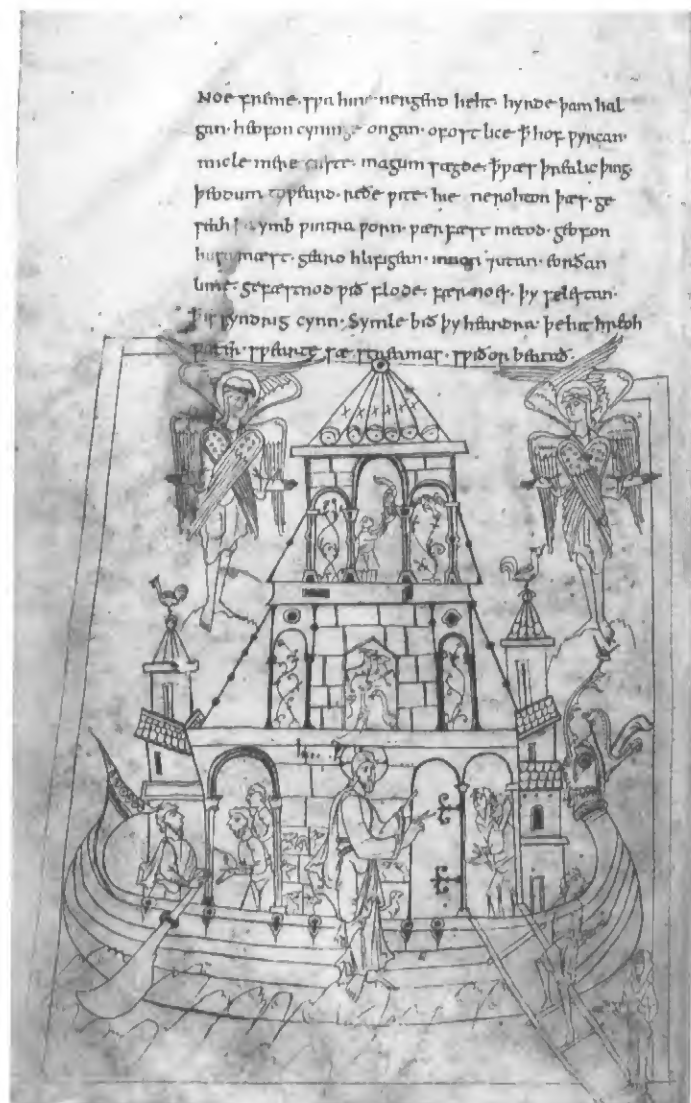 Noe freme· sƿa hine· nergend heht· hyrde þam hal
gan· heofon cyninge ongan· ofost lice ꝥ hof ƿyrcan·
micle mere ciste· magum sægde· ꝥ ƿæs þrealic þing·
þeodum toƿeard· reðe ƿite· hie nerohton þæs· ge
seah þa ymb ƿintra ƿorn· ƿærfæst metod· geofon
husa mæst· gearo hlifigean· innan ⁊utan· eorðan
lime· gefæstnod ƿið flode· fær noes· þy selestan·
ꝥ is syndrig cynn· Symle bið þy heardra þehit hreoh
ƿæter· sƿearte sæ streamas· sƿiðor beatað·